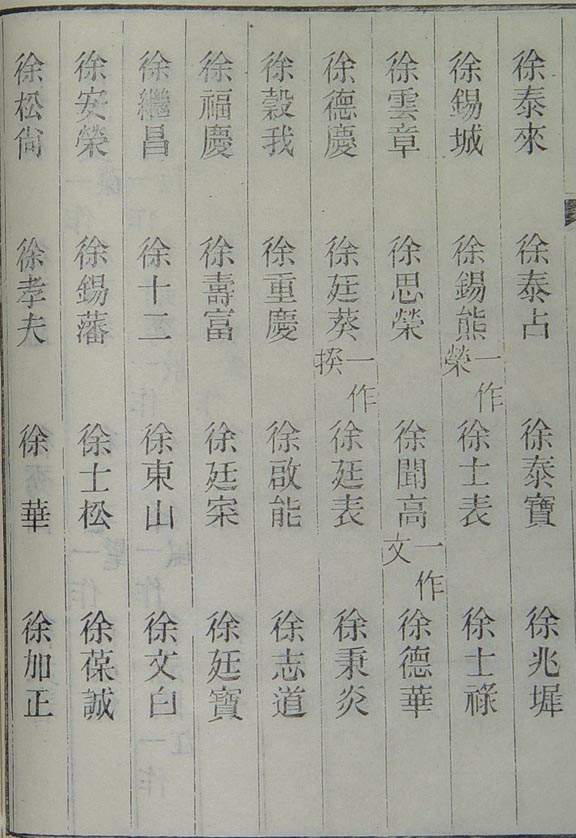 徐泰來 徐泰占 徐泰寶 徐兆墀
徐錫城 徐錫熊一作榮 徐士表 徐士祿
徐雲章 徐思榮 徐聞高一作文 徐德華
徐德慶 徐廷葵一作揆 徐廷表 徐秉炎
徐穀我 徐重慶 徐啟能 徐志道
徐福慶 徐壽富 徐廷寀 徐廷寶
徐繼昌 徐十二 徐東山 徐文白
徐安榮 徐錫藩 徐士松 徐葆誠
徐松尙 徐孝夫 徐華 徐加正